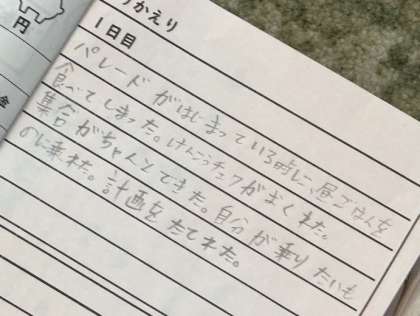 りかえり
円
1日目
金
パレードがはじまっている時に、昼ごはんを
食べてしまった。けんこうチェアがまくれた。
集合がちゃんとできた。自分が乗りたいも
のに乗れた。計画をたてれた。